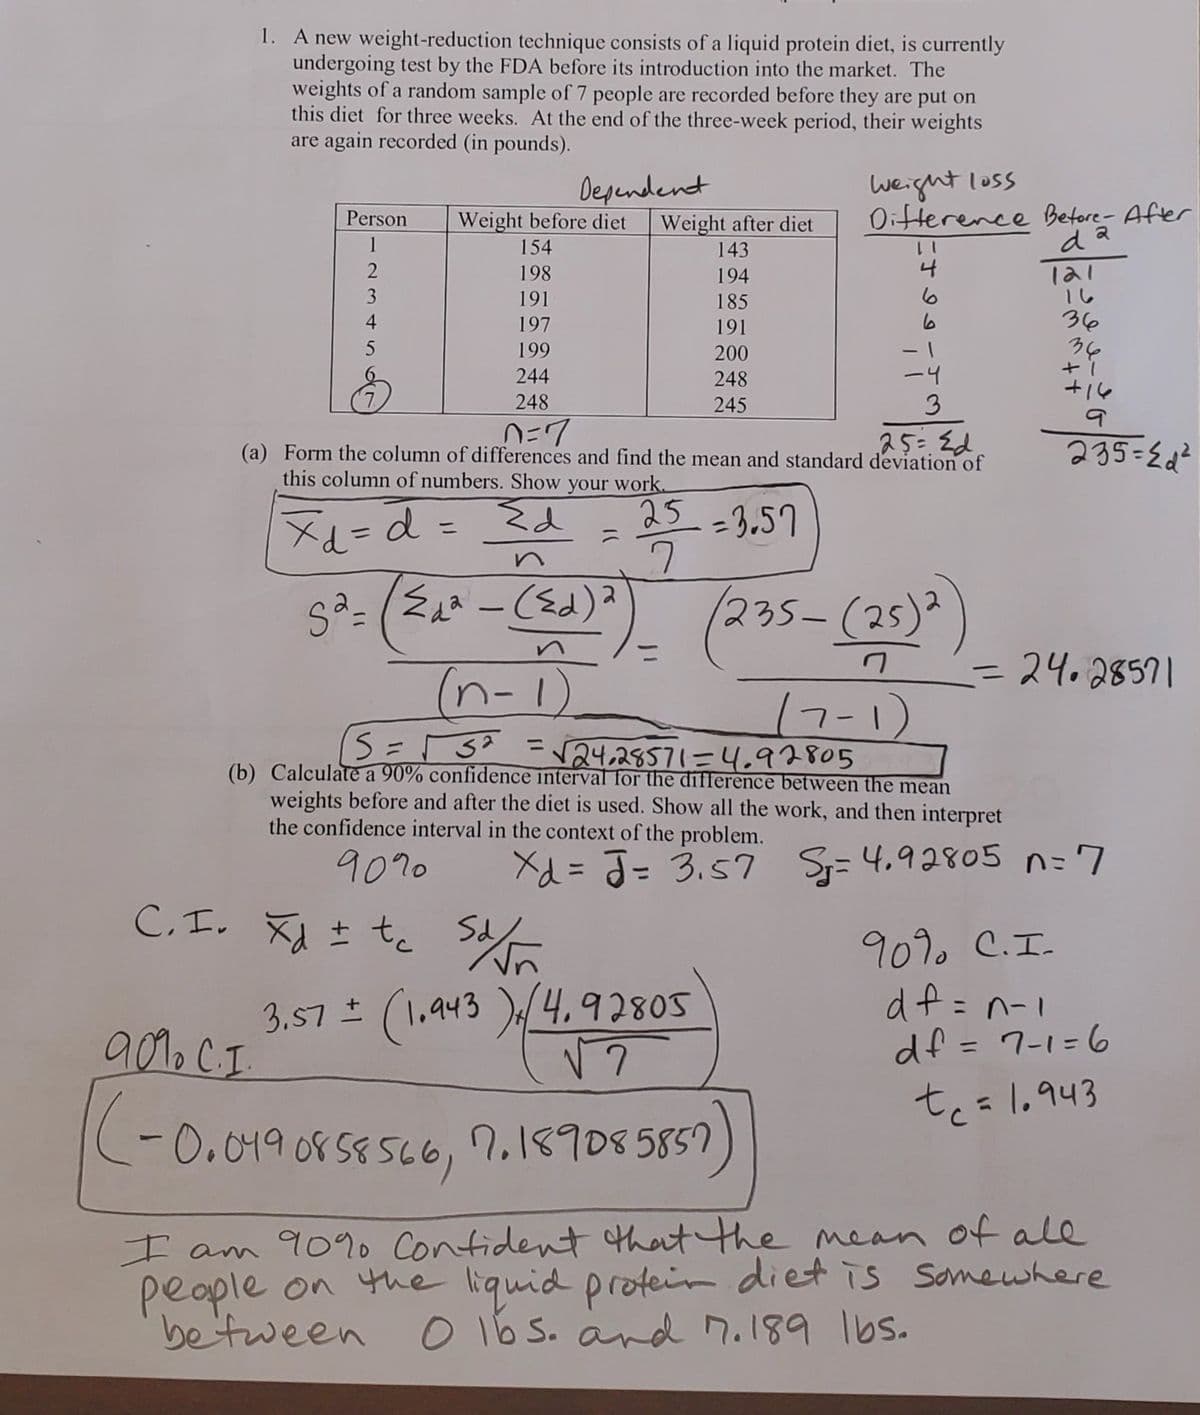 1. A new weight-reduction technique consists of a liquid protein diet, is currently
undergoing test by the FDA before its introduction into the market. The
weights of a random sample of 7 people are recorded before they are put on
this diet for three weeks. At the end of the three-week period, their weights
are again recorded (in pounds).
Dependent
weight loss
Difference Before - After
Person Weight before diet Weight after diet d²
1 154 143 11 121
2 198 194 4 16
3 191 185 6 36
4 197 191 6 36
5 199 200 -1 +1
6 244 248 -4 +16
7 248 245 3 9
n=7 25= Σd 235=Σd²
(a) Form the column of differences and find the mean and standard deviation of
this column of numbers. Show your work.
x̄d = d̄ = Σd/n = 25/7 = 3.57
s² = (Σd² - (Σd)²/n)/(n-1) = (235 - (25)²/7)/(7-1) = 24.28571
S = √s² = √24.28571 = 4.92805
(b) Calculate a 90% confidence interval for the difference between the mean
weights before and after the diet is used. Show all the work, and then interpret
the confidence interval in the context of the problem.
90% x̄d = d̄ = 3.57 Sd = 4.92805 n=7
C.I. x̄d ± tc Sd/√n
90% C.I.
3.57 ± (1.943)×(4.92805/√7)
df = n-1
df = 7-1=6
90% C.I.
tc = 1.943
(-0.0490858566, 7.189085857)
I am 90% Confident that the mean of all
people on the liquid protein diet is somewhere
between 0 lbs. and 7.189 lbs.